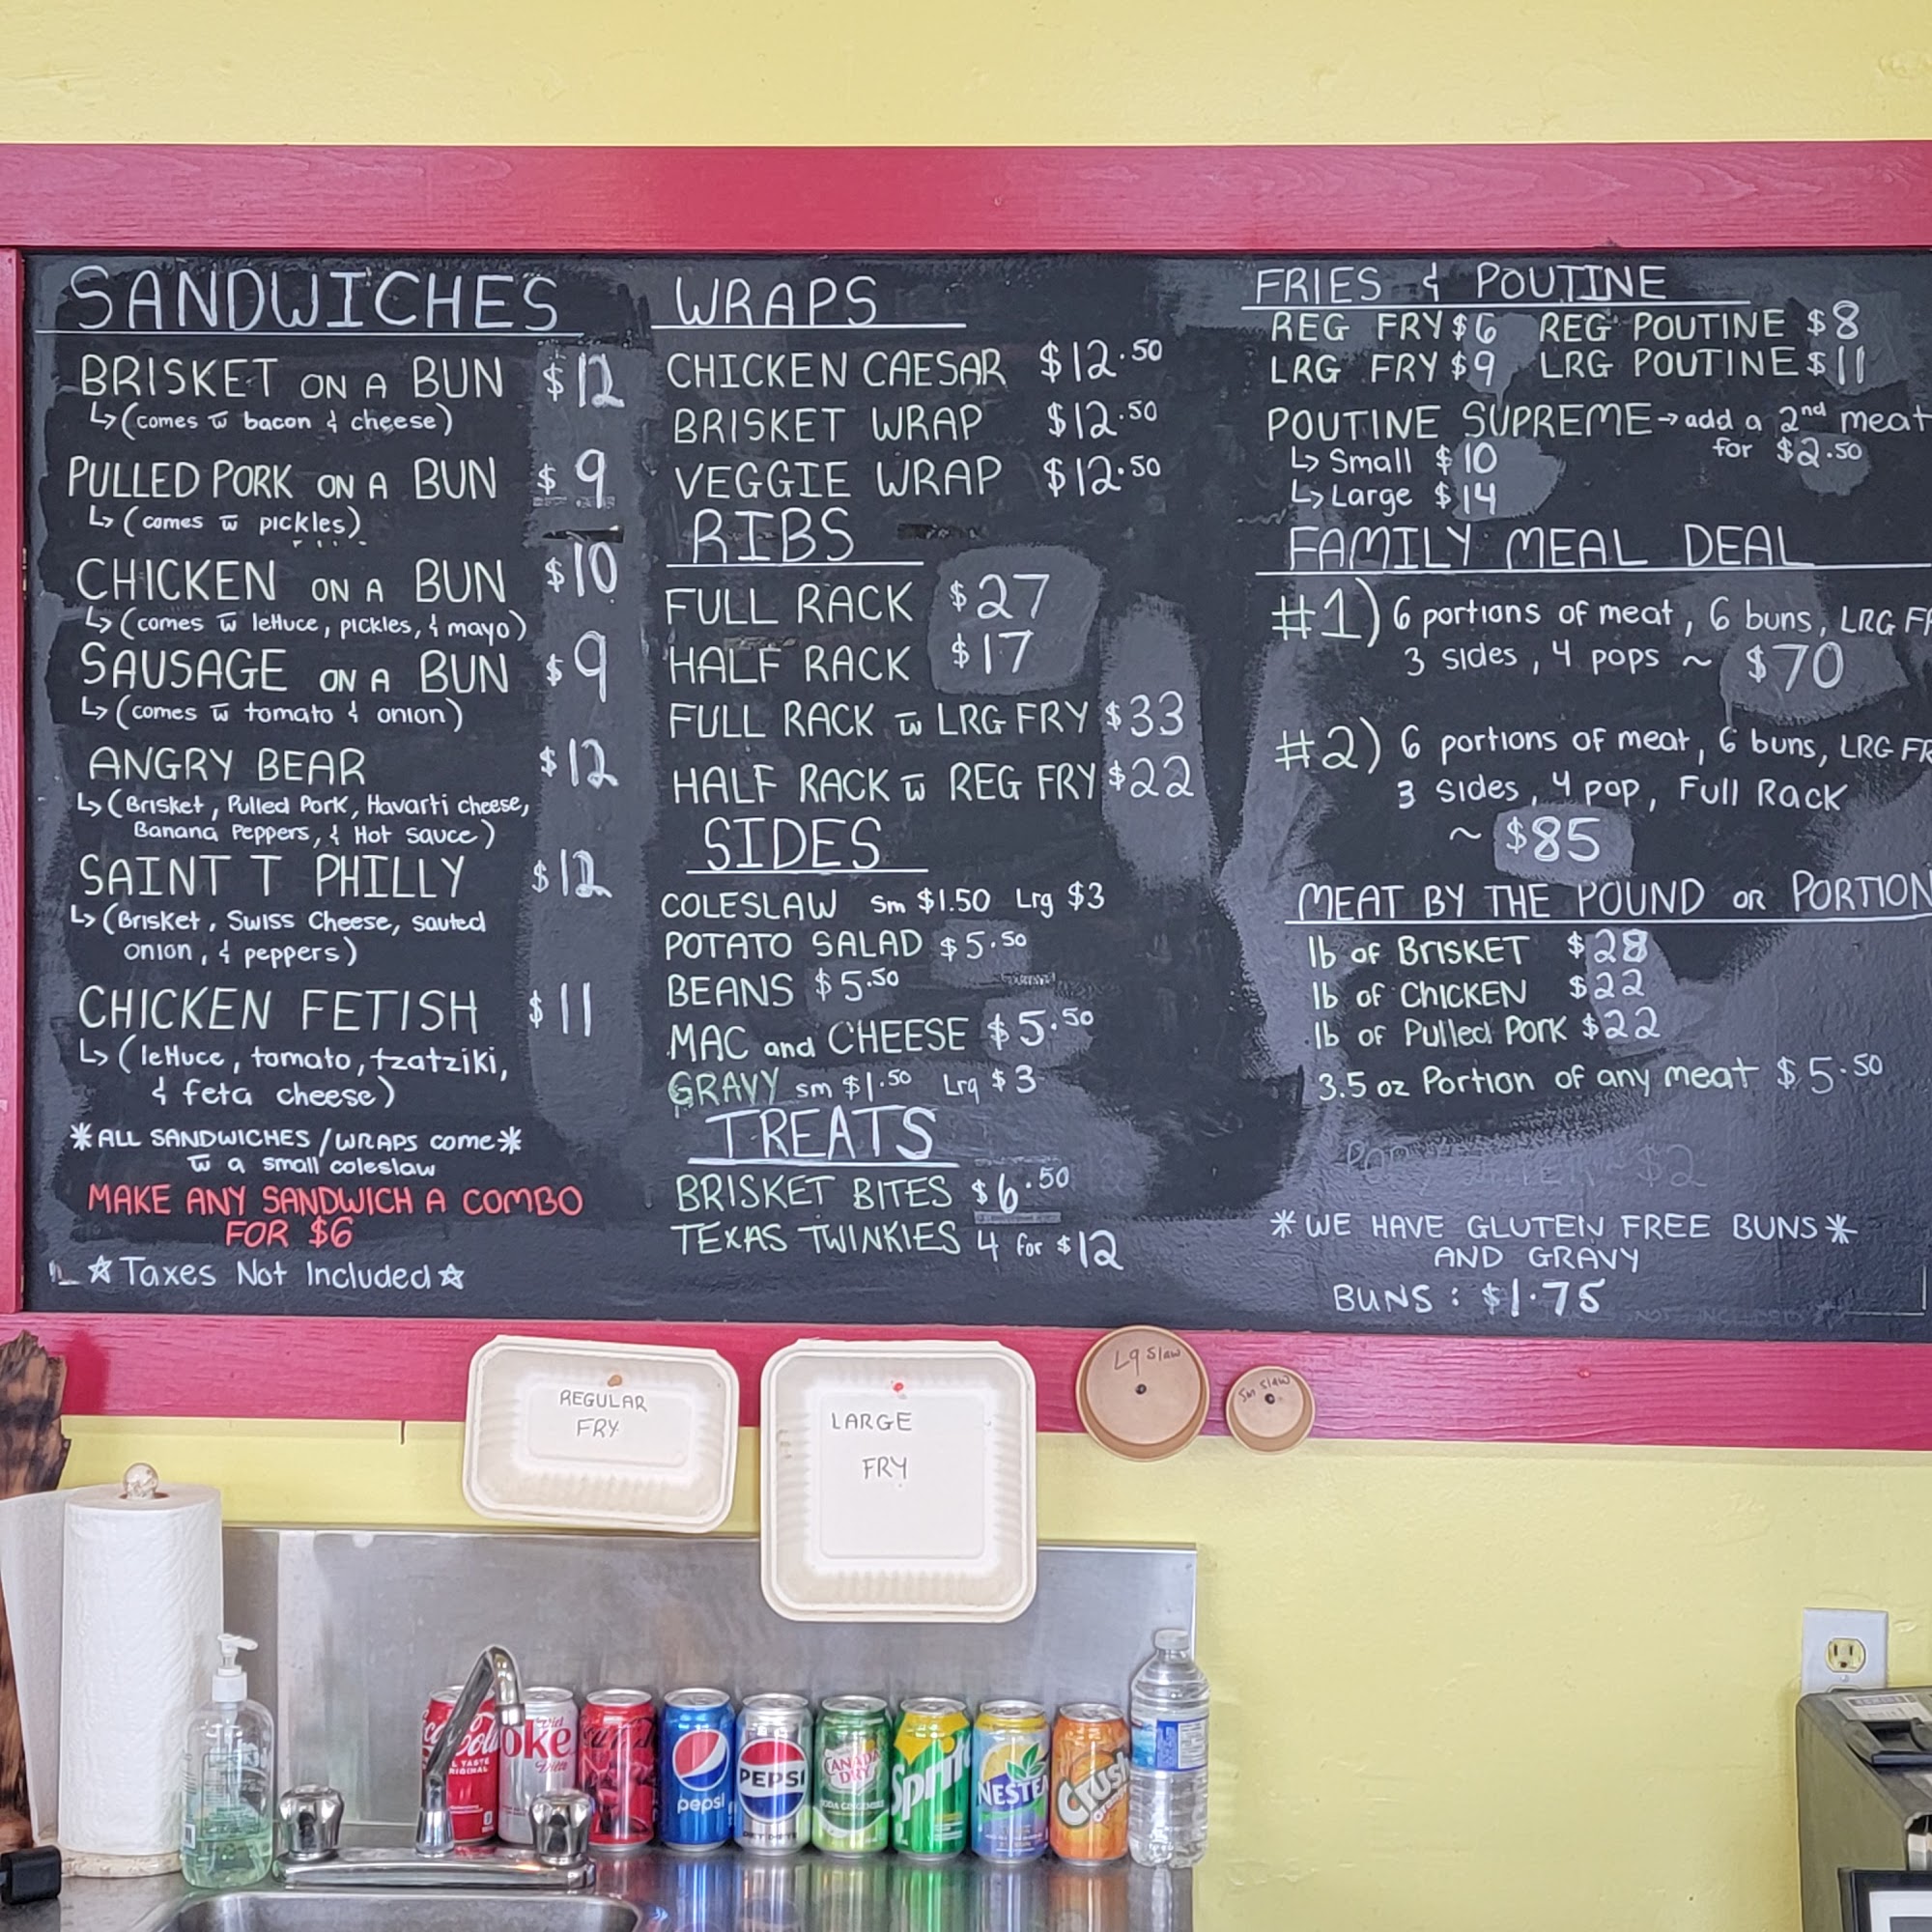 SANDWICHES
BRISKET ON A BUN $12
↳(comes w̄ bacon & cheese)
PULLED PORK ON A BUN $9
↳(comes w̄ pickles)
CHICKEN ON A BUN $10
↳(comes w̄ lettuce, pickles, & mayo)
SAUSAGE ON A BUN $9
↳(comes w̄ tomato & onion)
ANGRY BEAR $12
↳(Brisket, Pulled Pork, Havarti cheese,
Banana Peppers, & Hot Sauce)
SAINT T PHILLY $12
↳(Brisket, Swiss Cheese, sauted
onion, & peppers)
CHICKEN FETISH $11
↳(lettuce, tomato, tzatziki,
& feta cheese)
*ALL SANDWICHES/WRAPS come*
w̄ a small coleslaw
MAKE ANY SANDWICH A COMBO
FOR $6
☆Taxes Not Included☆
WRAPS
CHICKEN CAESAR $12.50
BRISKET WRAP $12.50
VEGGIE WRAP $12.50
RIBS
FULL RACK $27
HALF RACK $17
FULL RACK w̄ LRG FRY $33
HALF RACK w̄ REG FRY $22
SIDES
COLESLAW Sm $1.50 Lrg $3
POTATO SALAD $5.50
BEANS $5.50
MAC and CHEESE $5.50
GRAVY sm $1.50 Lrg $3
TREATS
BRISKET BITES $6.50
TEXAS TWINKIES 4 for $12
FRIES & POUTINE
REG FRY $6 REG POUTINE $8
LRG FRY $9 LRG POUTINE $11
POUTINE SUPREME→add a 2nd meat
for $2.50
↳Small $10
↳Large $14
FAMILY MEAL DEAL
#1) 6 portions of meat, 6 buns, LRG FR
3 sides, 4 pops ~ $70
#2) 6 portions of meat, 6 buns, LRG FR
3 sides, 4 pop, Full Rack
~ $85
MEAT BY THE POUND OR PORTION
lb of BRISKET $28
lb of CHICKEN $22
lb of Pulled Pork $22
3.5 oz Portion of any meat $5.50
*WE HAVE GLUTEN FREE BUNS*
AND GRAVY
BUNS: $1.75
REGULAR
FRY
LARGE
FRY
Lg Slaw
Sm Slaw
Coca-Cola
Diet
Coke
pepsi
PEPSI
CANADA
DRY
Sprite
NESTEA
Crush